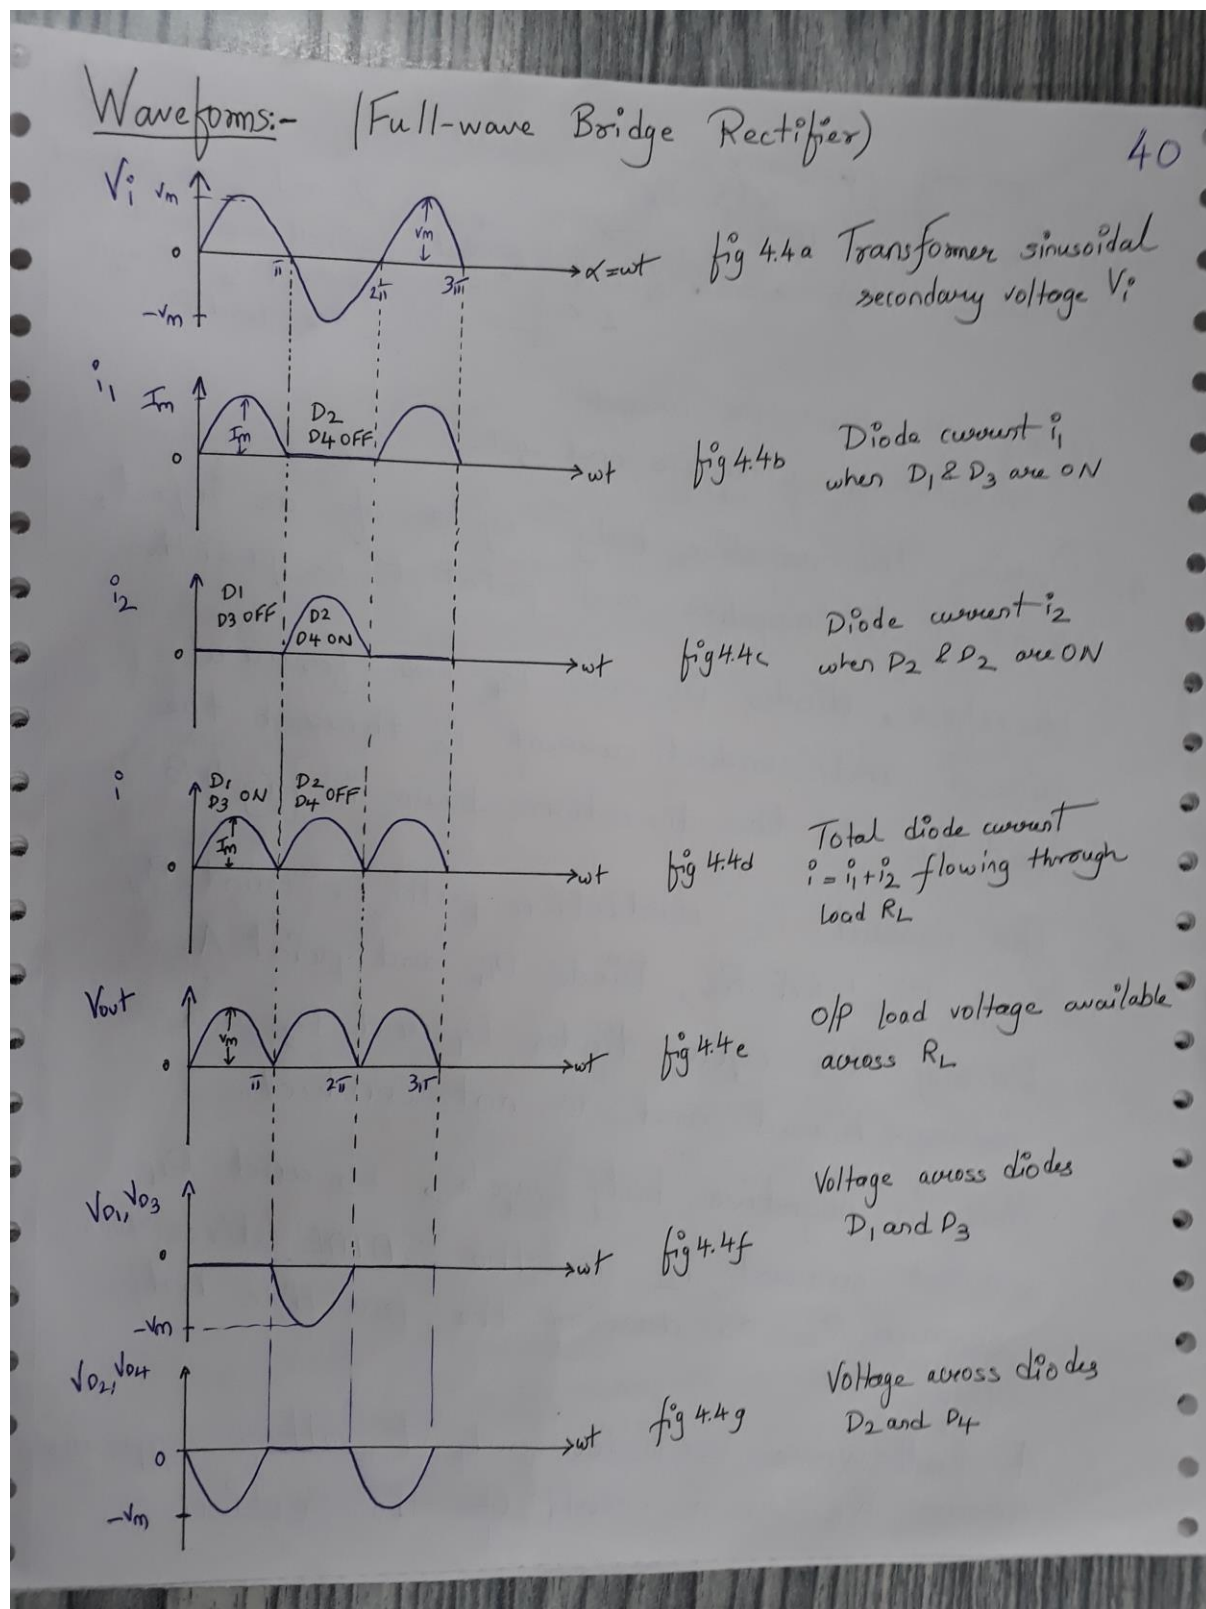 Waveforms:- (Full-wave Bridge Rectifier)
40
Vi Vm
0
-Vm
Vm
π 2π 3π
α=wt
fig 4.4a Transformer sinusoidal
secondary voltage Vi
i1 Im
0
Im
D2
D4 OFF
wt
fig 4.4b Diode current i1
when D1 & D3 are ON
i2
0
D1
D3 OFF
D2
D4 ON
wt
fig 4.4c Diode current i2
when D2 & D2 are ON
i
0
D1
D3 ON
D2
D4 OFF
Im
wt
fig 4.4d Total diode current
i = i1 + i2 flowing through
load RL
Vout
0
Vm
π 2π 3π
wt
fig 4.4e O/P load voltage available
across RL
VD1, VD3
0
-Vm
wt
fig 4.4f Voltage across diodes
D1 and D3
VD2, VD4
0
-Vm
wt
fig 4.4g Voltage across diodes
D2 and D4